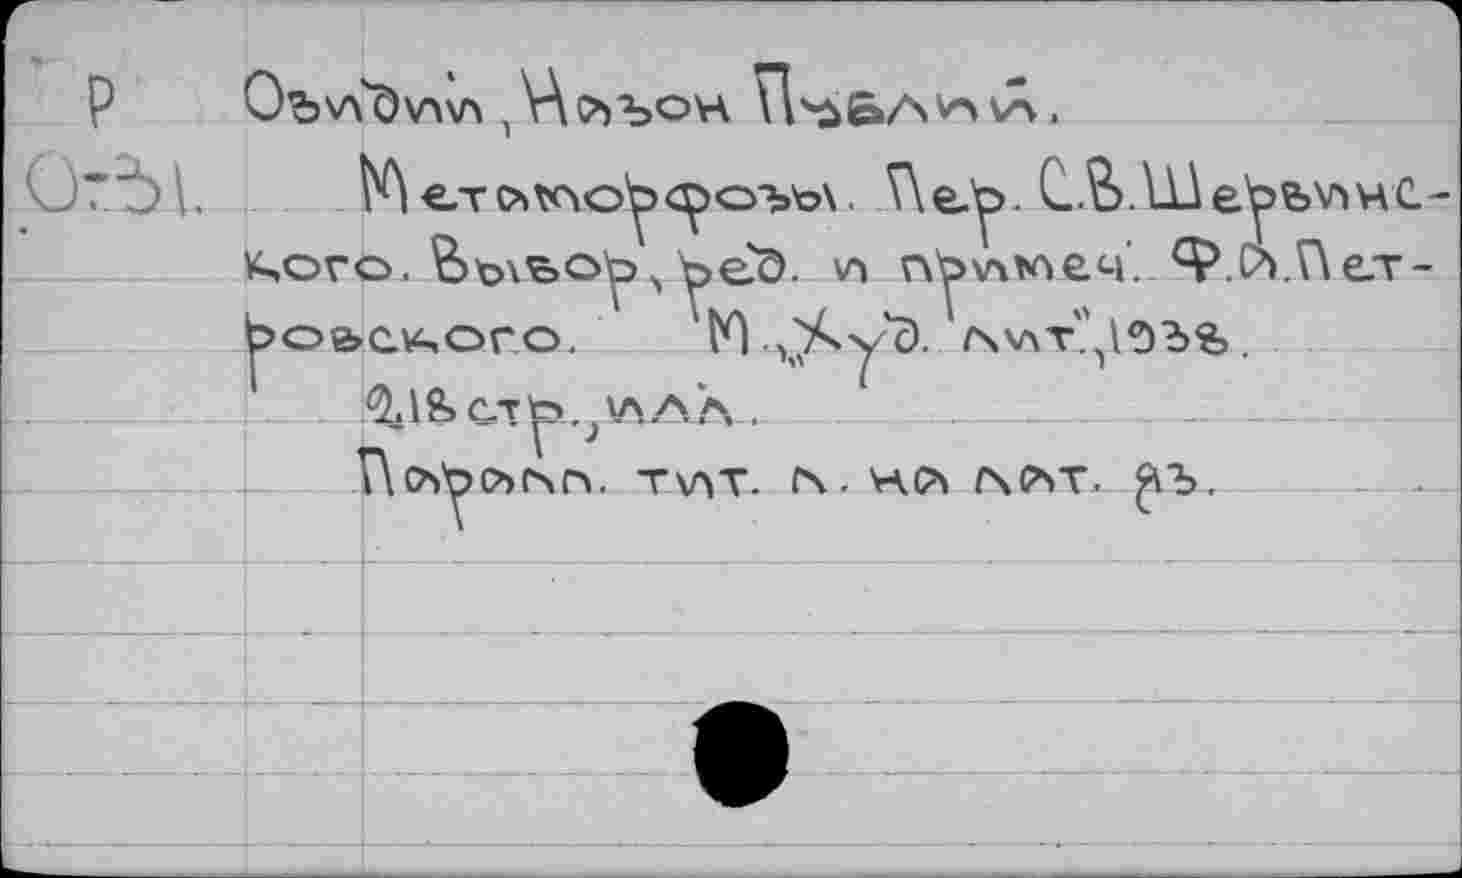 Р Овидий, Назон Публий.
О-31. Метаморфозы. Пер. С.В.Шервинс-
кого. Выбор, ред. и примеч. Ф.А.Пет-
ровского. М., "Худ. лит.", 1938.
с.тр., илл.
Паралл. тит. л. на лат. яз.